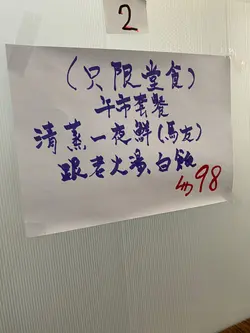 2
(只限堂食)
午市套餐
清蒸一夜鮮(馬友)
跟老火湯、白飯
98